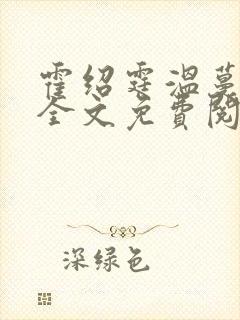 霍绍霆温蔓
全文免费阅
深绿色